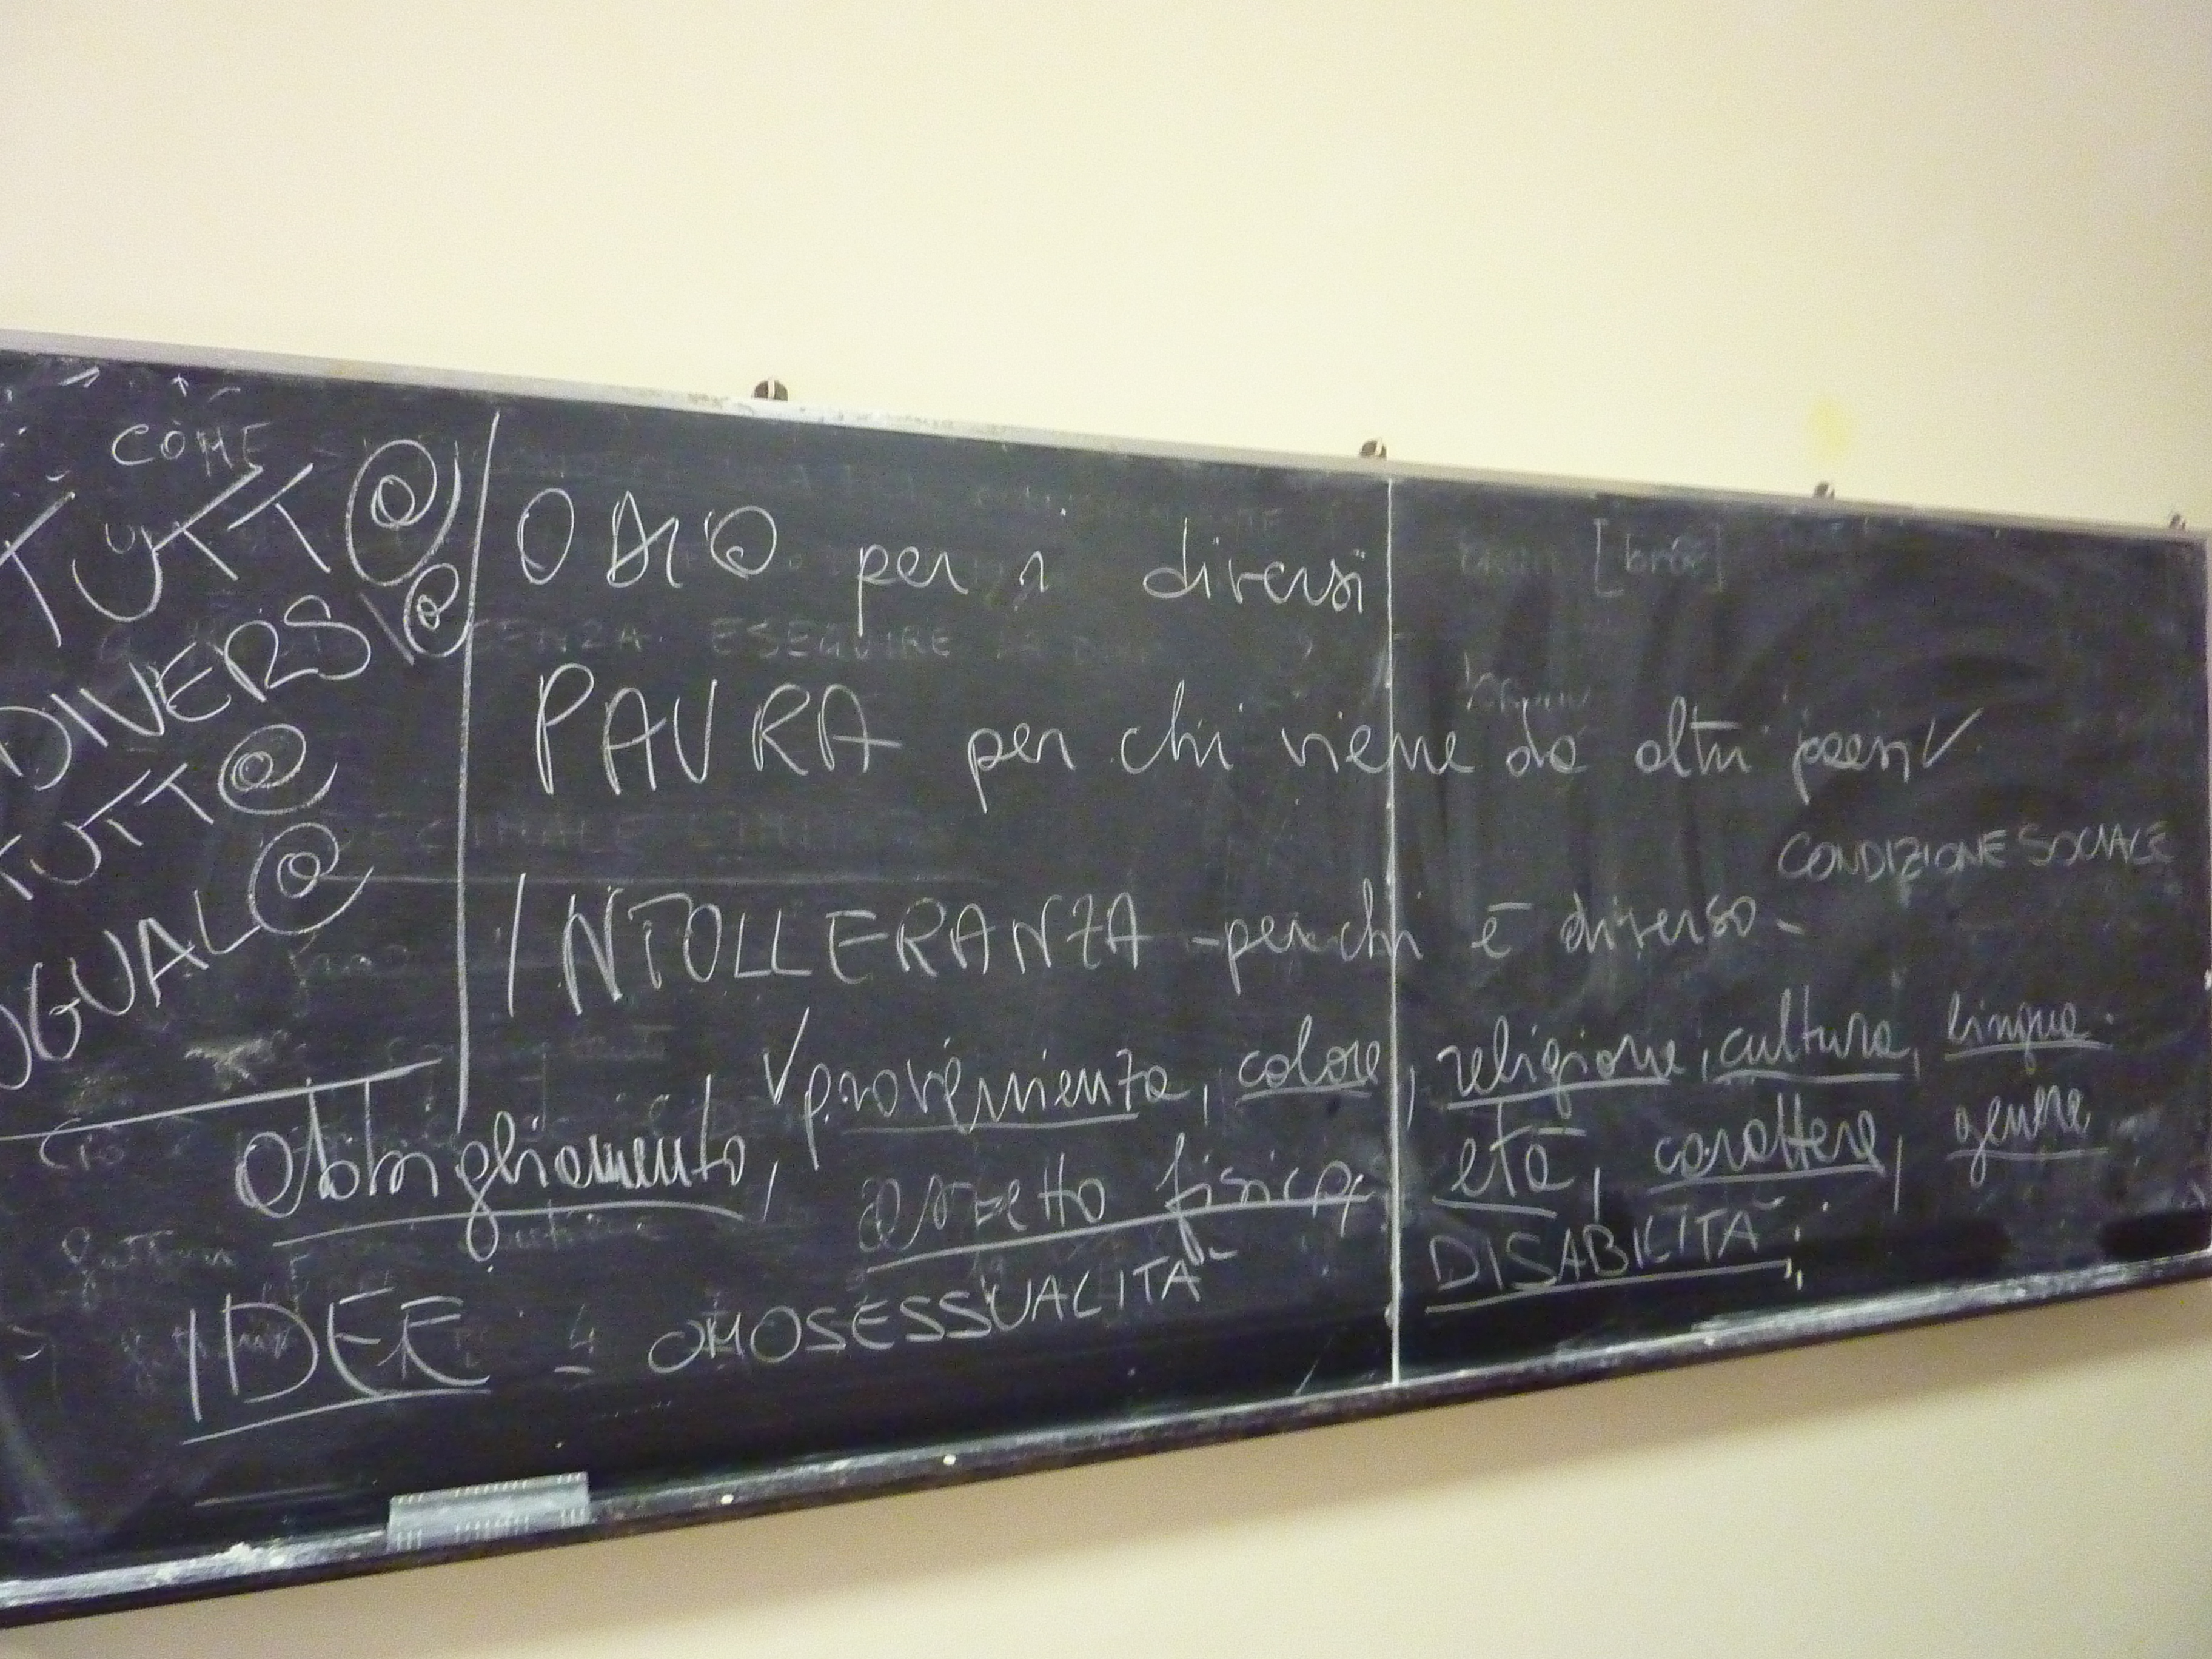 COME
TUTT@
DIVERS@
TUTT@
UGUAL@
ODIO per i diversi
PAURA per chi viene da altri paesi
CONDIZIONE SOCIALE
INTOLLERANZA - per chi è diverso -
provenienza, colore, religione, cultura, lingua.
abbigliamento, aspetto fisico, età, carattere, genere
IDEE - OMOSESSUALITÀ DISABILITÀ
SENZA ESEGUIRE